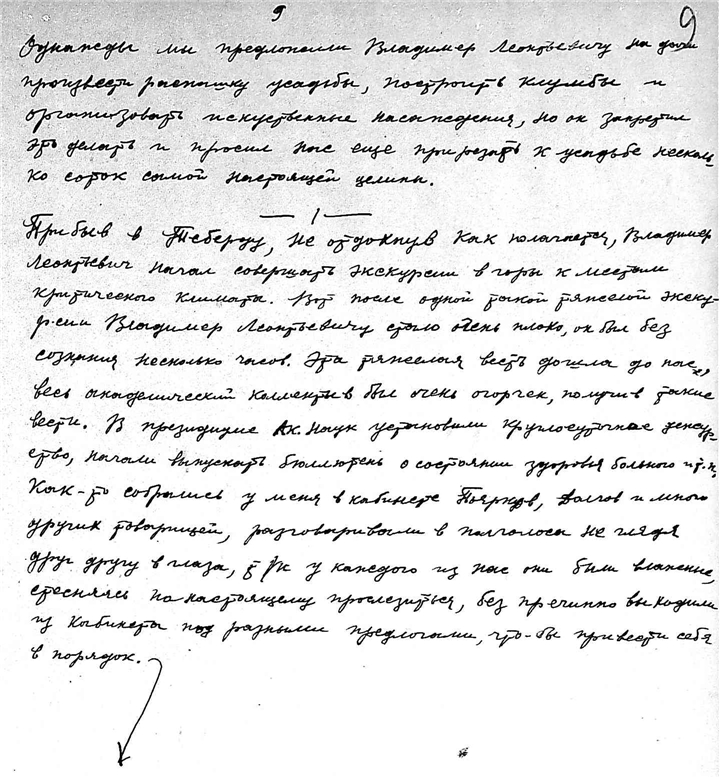 9 9
Однажды мы предложили Владимер Леонтьевичу на даче
произвести распашку усадьбы, построить клумбы и
организовать искуственные насаждения, но он запретил
это делать и просил нас еще прирезать к усадьбе несколь-
ко соток самой настоящей целины.
— 1 —
Прибыв в Теберду, не отдохнув как полагается, Владимер
Леонтьевич начал совершать экскурсии в горы к местам
критического климата. Вот после одной такой тяжелой экску-
рсии Владимер Леонтьевичу стало очень плохо, он был без
сознания несколько часов. Эта тяжелая весть дошла до нас,
весь академический коллектив был очень огорчен, получив такие
вести. В президиуме Ак. Наук установили круглосуточное дежур-
ство, начали выпускать бюллютень о состоянии здоровья больного и т.п.
Как-то собрались у меня в кабинете Поярков, и много
других товарищей, разговаривали в полголоса не глядя
друг другу в глаза, т/к у каждого из нас они были влажные,
стесняясь по настоящему прослезиться, без причинно выходили
из кабинета под разными предлогами, что-бы привести себя
в порядок.